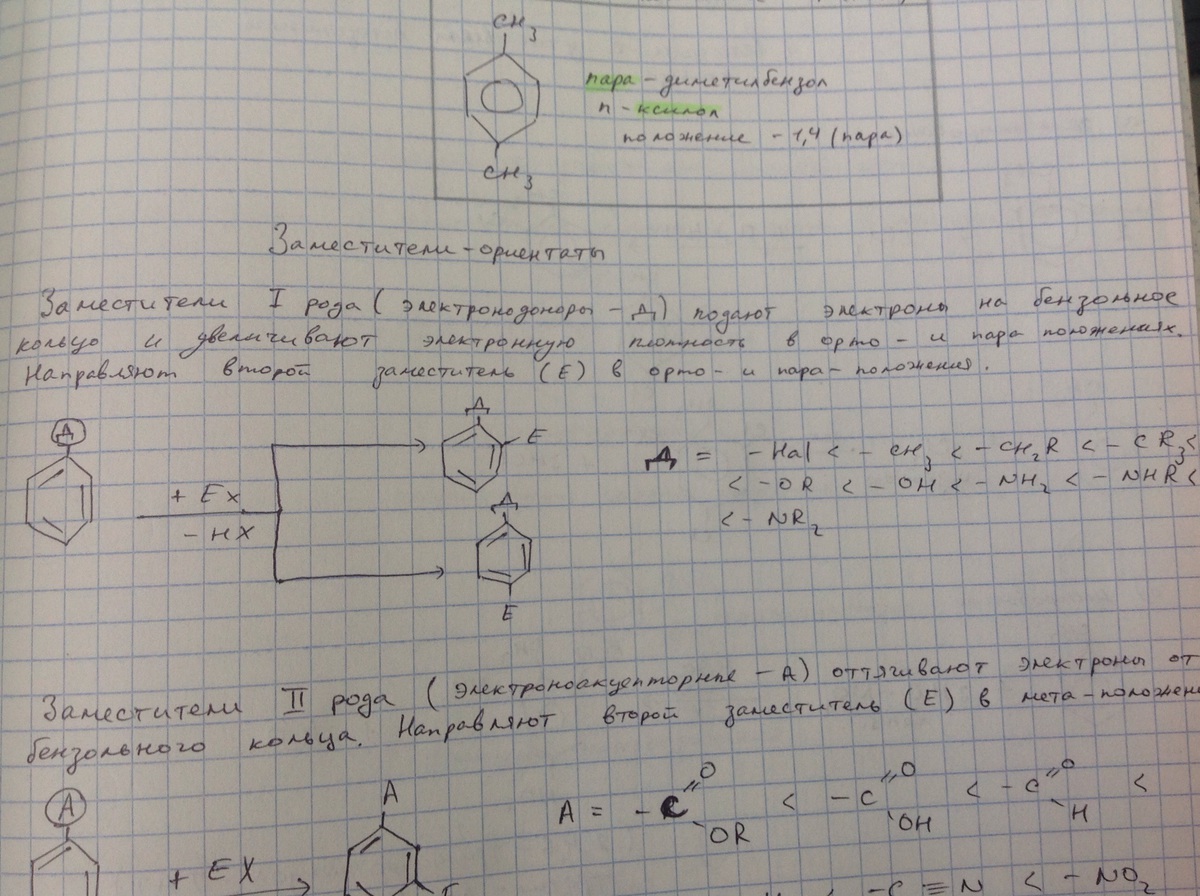 CH3
пара - диметилбензол
п - ксилол
положение - 1,4 (пара)
CH3
Заместители - ориентаты
Заместители I рода ( электронодоноры - Д) подают электроны на бензольное
кольцо и увеличивают электронную плотность в орто - и пара положениях.
Направляют второй заместитель (E) в орто- и пара- положения.
Д
Д
E
Д = - Hal < - CH3 < - CH2R < - CR3 <
+ Ex
- HX
Д
< - OR < - OH < - NH2 < - NHR <
< - NR2
E
Заместители II рода ( электроноакцепторные - А) оттягивают электроны от
бензольного кольца. Направляют второй заместитель (E) в мета-положени
A
A
A = - C O OR < - C O OH < - C O H <
+ EX
< - C ≡ N < - NO2